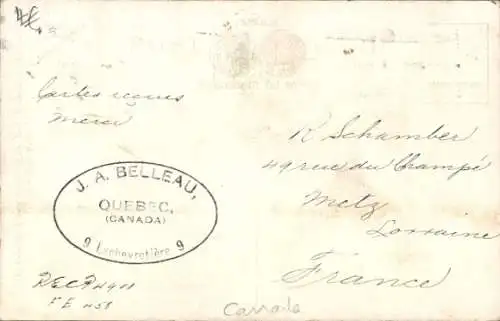 Cartes reçues
merci
R Schamber
49 rue du Champé
Metz
Lorraine
France
J. A. BELLEAU,
QUEBEC,
(CANADA)
9 Lachevrotière 9
Canada